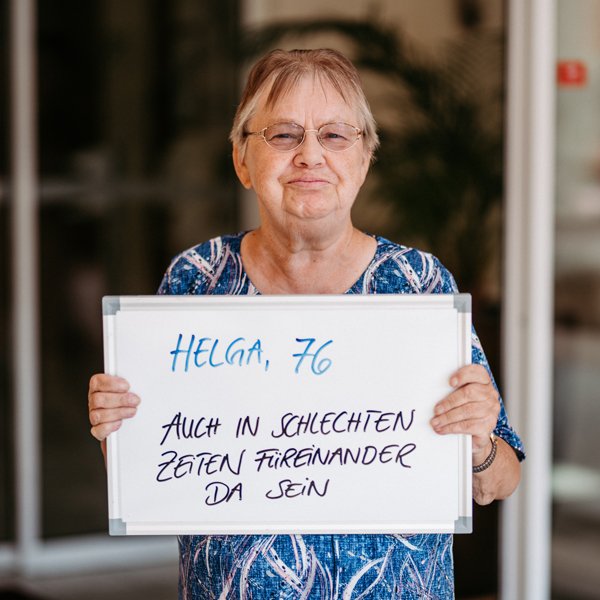 HELGA, 76
AUCH IN SCHLECHTEN
ZEITEN FÜREINANDER
DA SEIN